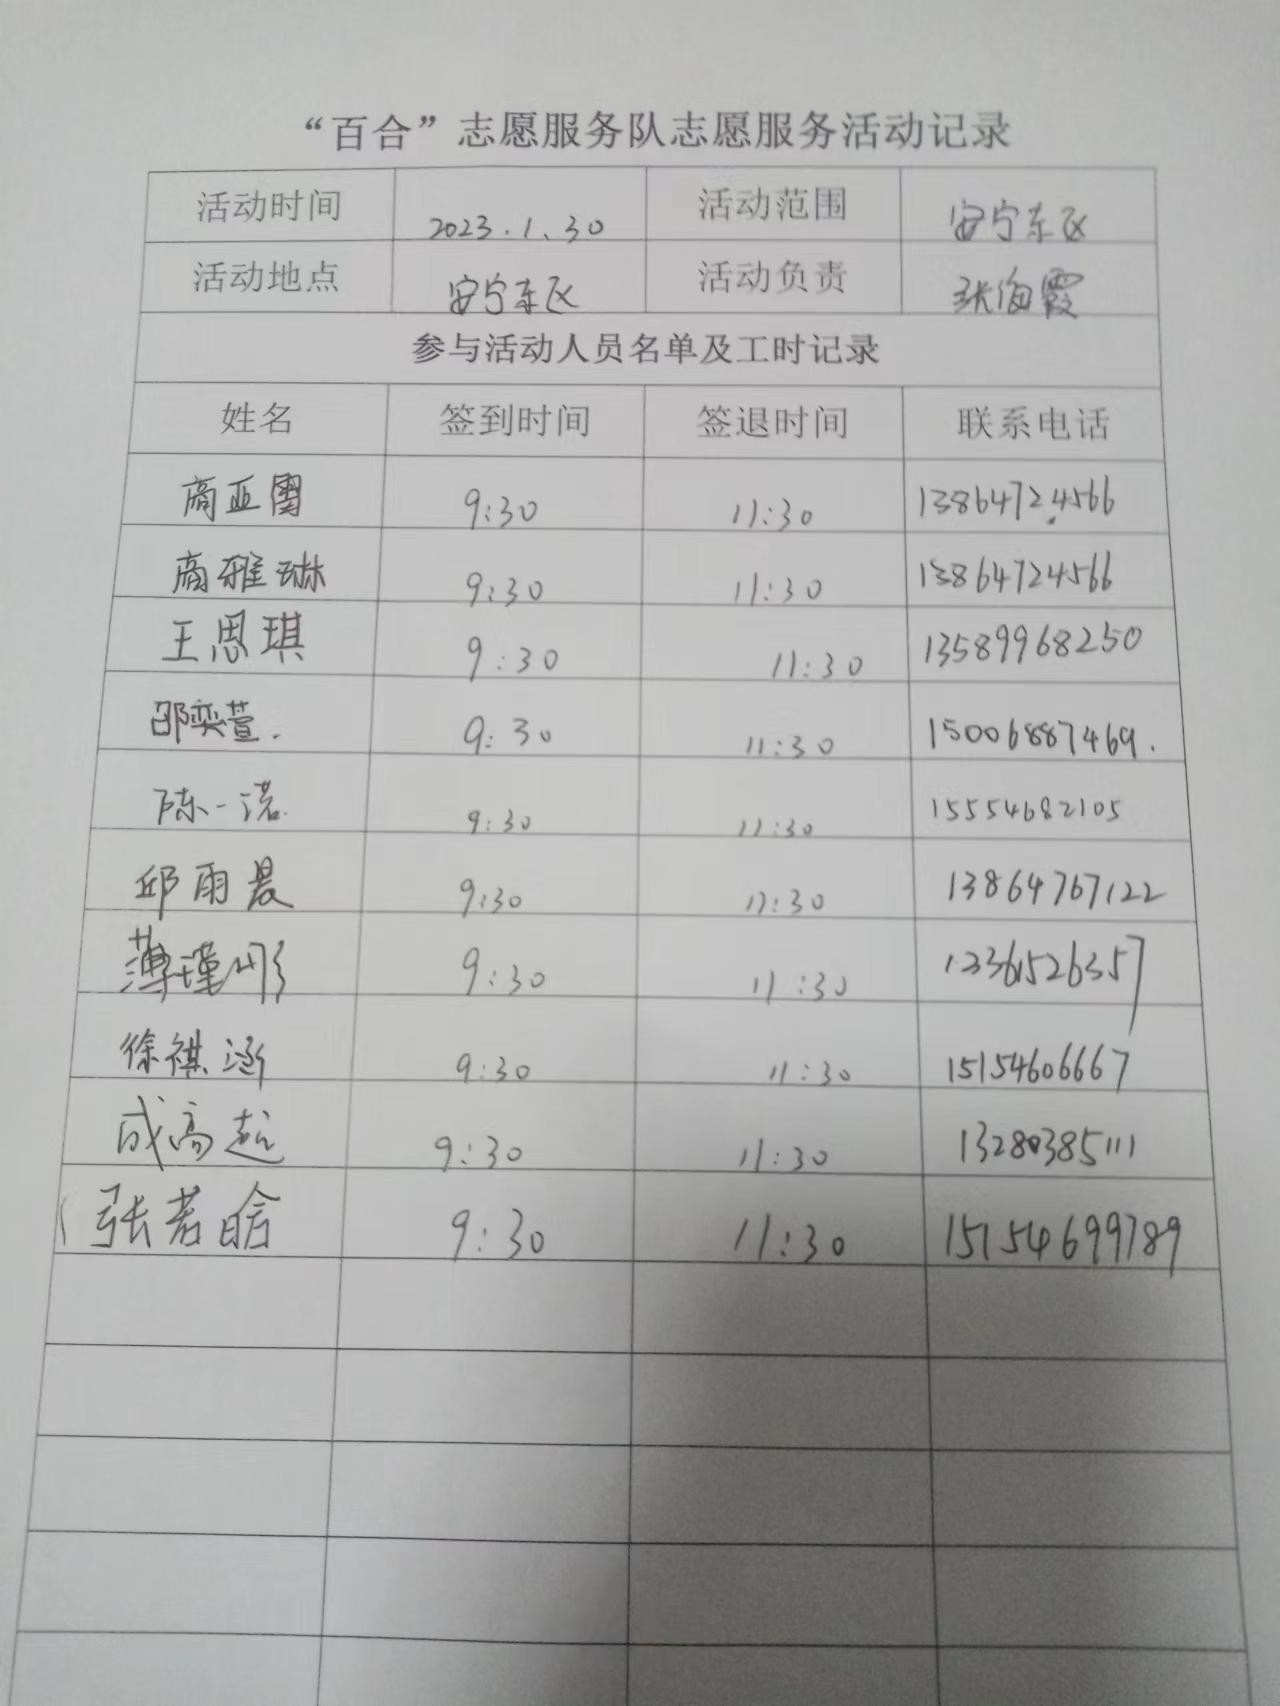 “百合”志愿服务队志愿服务活动记录
活动时间 2023.1.30 活动范围 安宁东区
活动地点 安宁东区 活动负责 张海霞
参与活动人员名单及工时记录
姓名 签到时间 签退时间 联系电话
商亚雷 9:30 11:30 13864724566
商雅琳 9:30 11:30 13864724566
王思琪 9:30 11:30 13589968250
邵奕萱. 9:30 11:30 15006887469.
陈一诺 9:30 11:30 15554682105
邱雨晨 9:30 11:30 13864767122
薄瑾彤 9:30 11:30 13361526357
徐祺涵 9:30 11:30 15154606667
成高起 9:30 11:30 13280385111
张若晗 9:30 11:30 15154699789